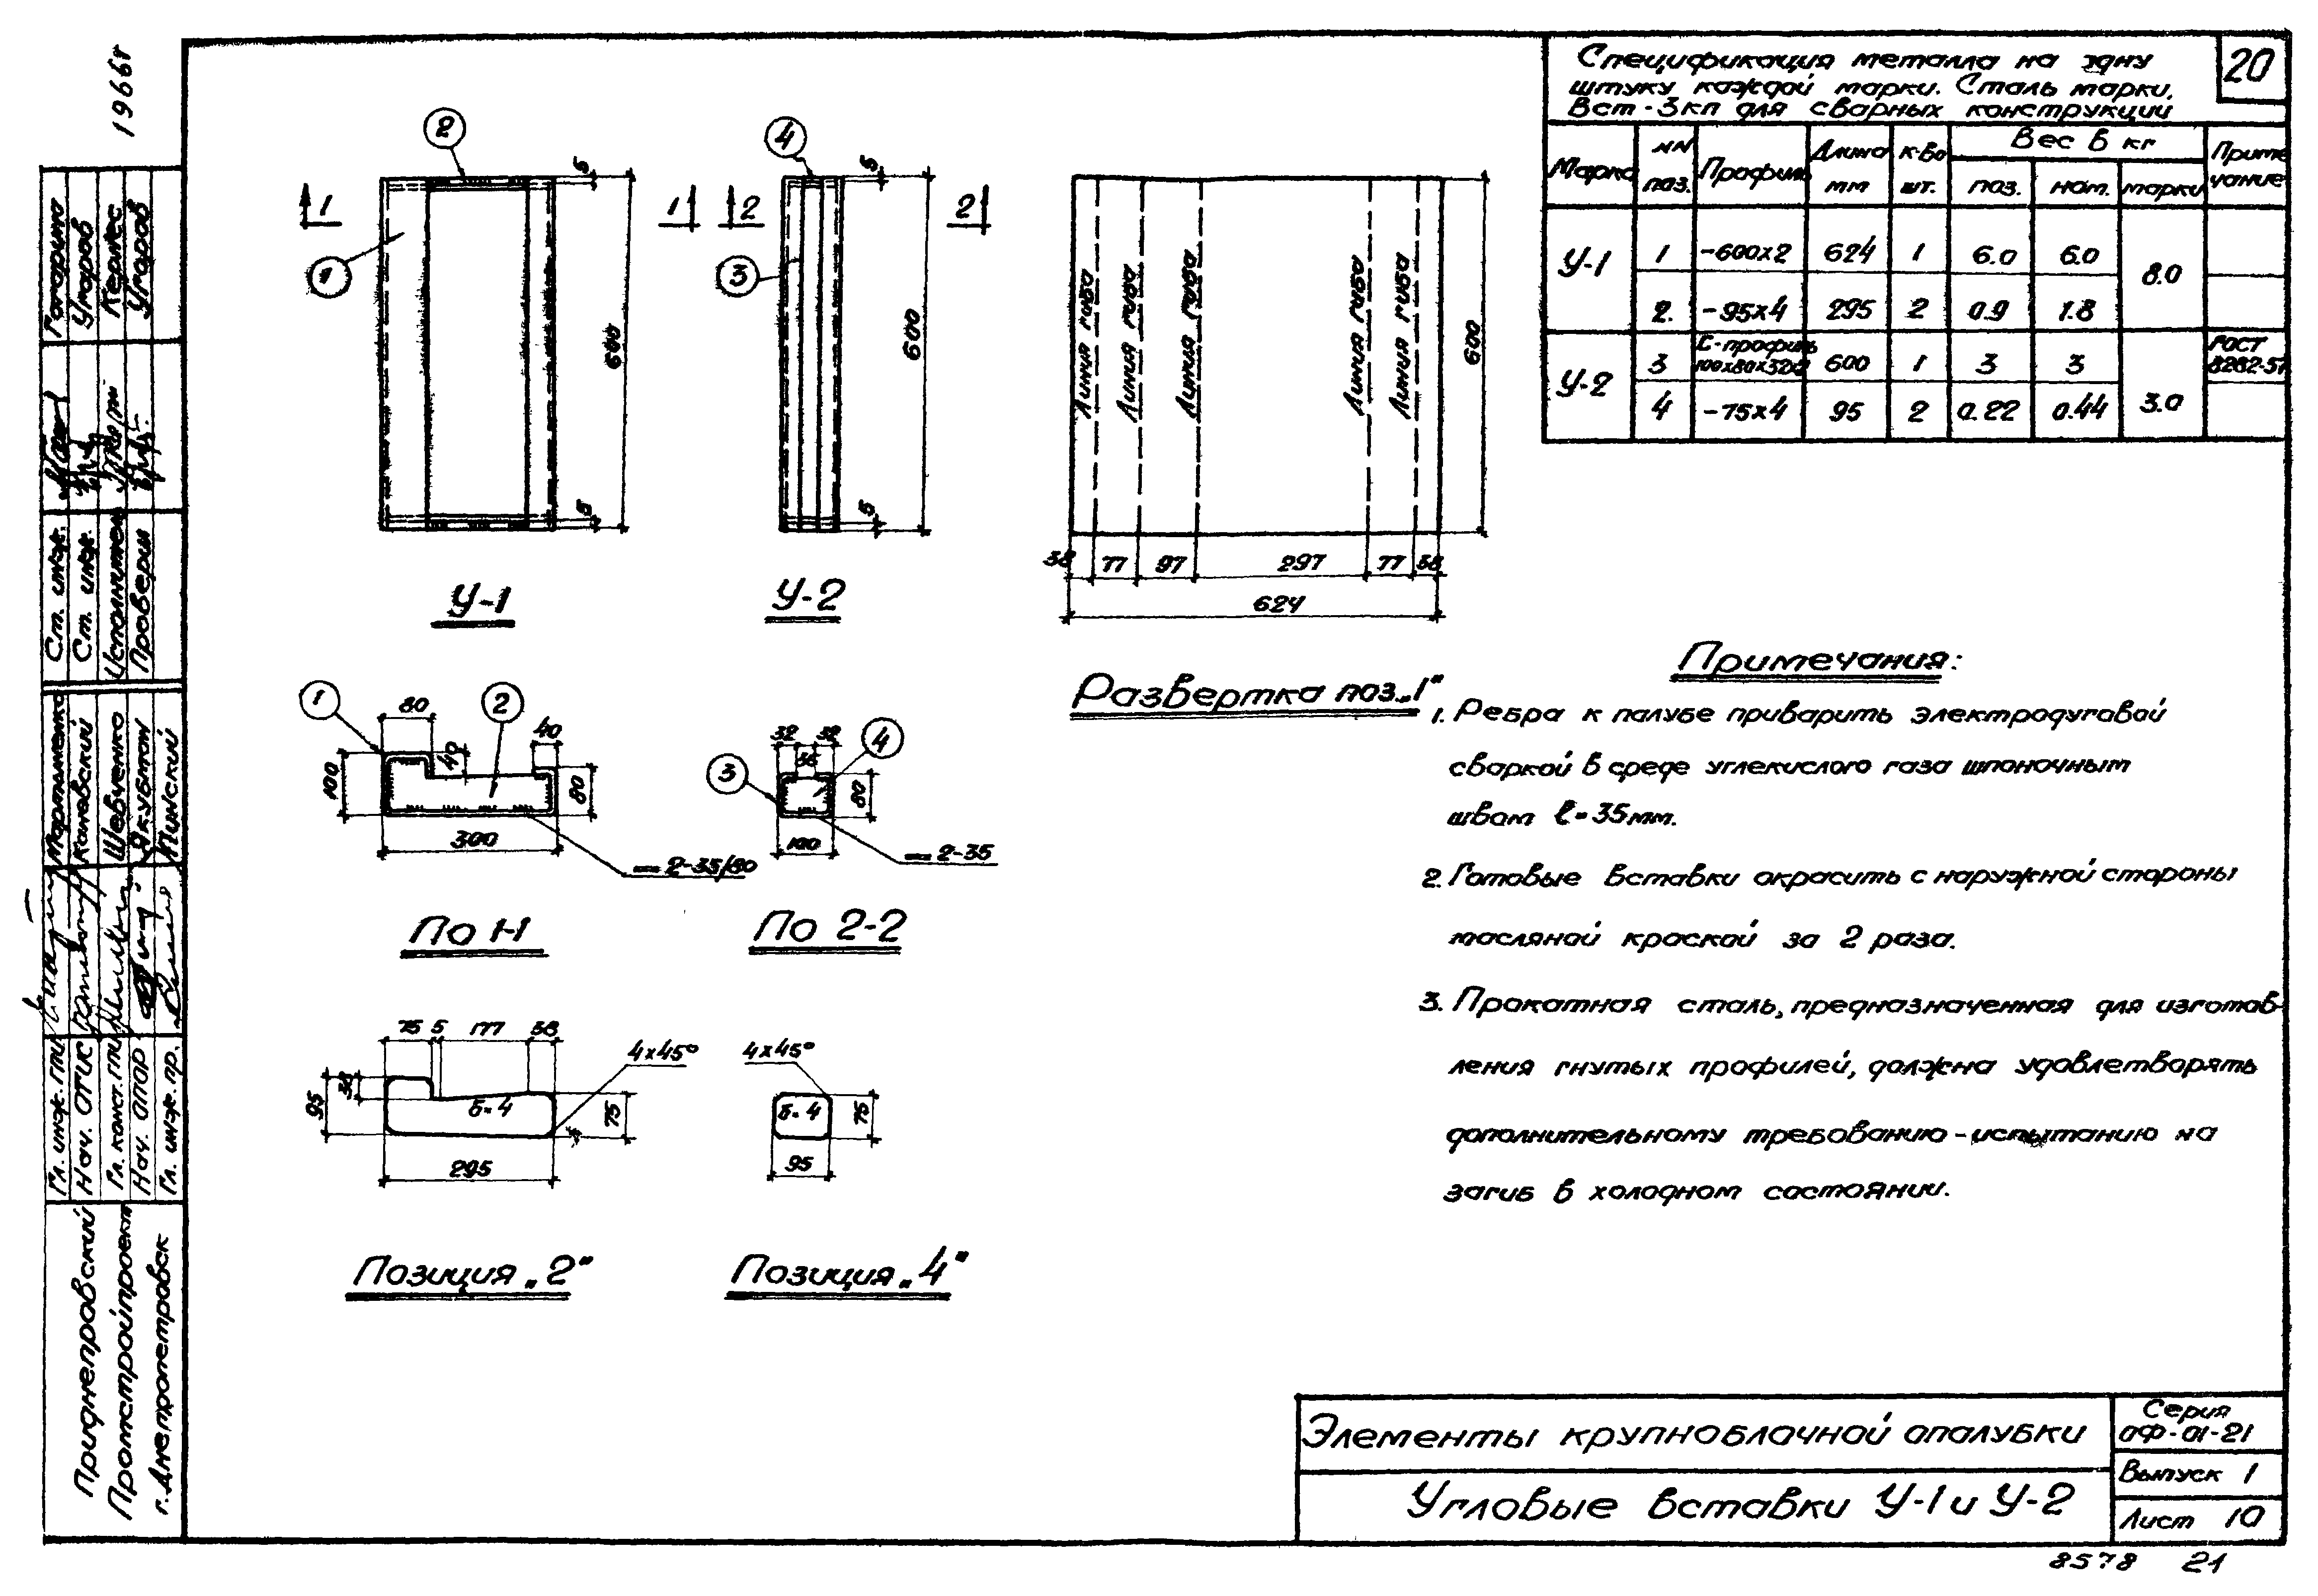 20
Спецификация металла на одну
штуку каждой марки. Сталь марки.
Вст-3кп для сварных конструкций
Марка
NN
поз.
Профиль
Длина
мм
к-во
шт.
Вес в кг
поз.
ном.
марки
Приме
чание
У-1
1 -600х2 624 1 6.0 6.0
8.0
2. -95х4 295 2 0.9 1.8
У-2
3 С-профиль 600 1 3 3
ГОСТ
4 -75х4 95 2 0.22 0.44
3.0
1966г
2
1
1
1
5
600
5
У-1
4
3
2
2
5
600
5
У-2
Линия гиба
Линия гиба
Линия гиба
Линия гиба
Линия гиба
600
38 77 97 297 77 38
624
Развертка поз. „1"
1
2
80
40
40
100
80
300
2-35/80
По 1-1
32 32
36
4
3
80
100
2-35
По 2-2
75 5 177 38
4х45°
95
38
δ=4
75
295
Позиция „2"
4х45°
δ=4
75
95
Позиция „4"
Примечания:
1. Ребра к палубе приварить электродуговой
сваркой в среде углекислого газа шпоночным
швом ℓ=35мм.
2. Готовые вставки окрасить с наружной стороны
масляной краской за 2 раза.
3. Прокатная сталь, предназначенная для изготав-
ления гнутых профилей, должна удовлетворять
дополнительному требованию - испытанию на
загиб в холодном состоянии.
Элементы крупноблачной опалубки
Угловые вставки У-1 и У-2
Серия
ОФ-01-21
Выпуск 1
Лист 10
8578 21
Ст. инж. Гагарина
Ст. инж. Угаров
Исполнитель Кернес
Проверил Угаров
Гл. инж. ПИ Мартыненко
Нач. ОТИС Кановский
Гл. конст. ПИ Шевченко
Нач. ОПОР Якубтон
Гл. инж. пр. Пинский
Приднепровский
Промстройпроект
г. Днепропетровск